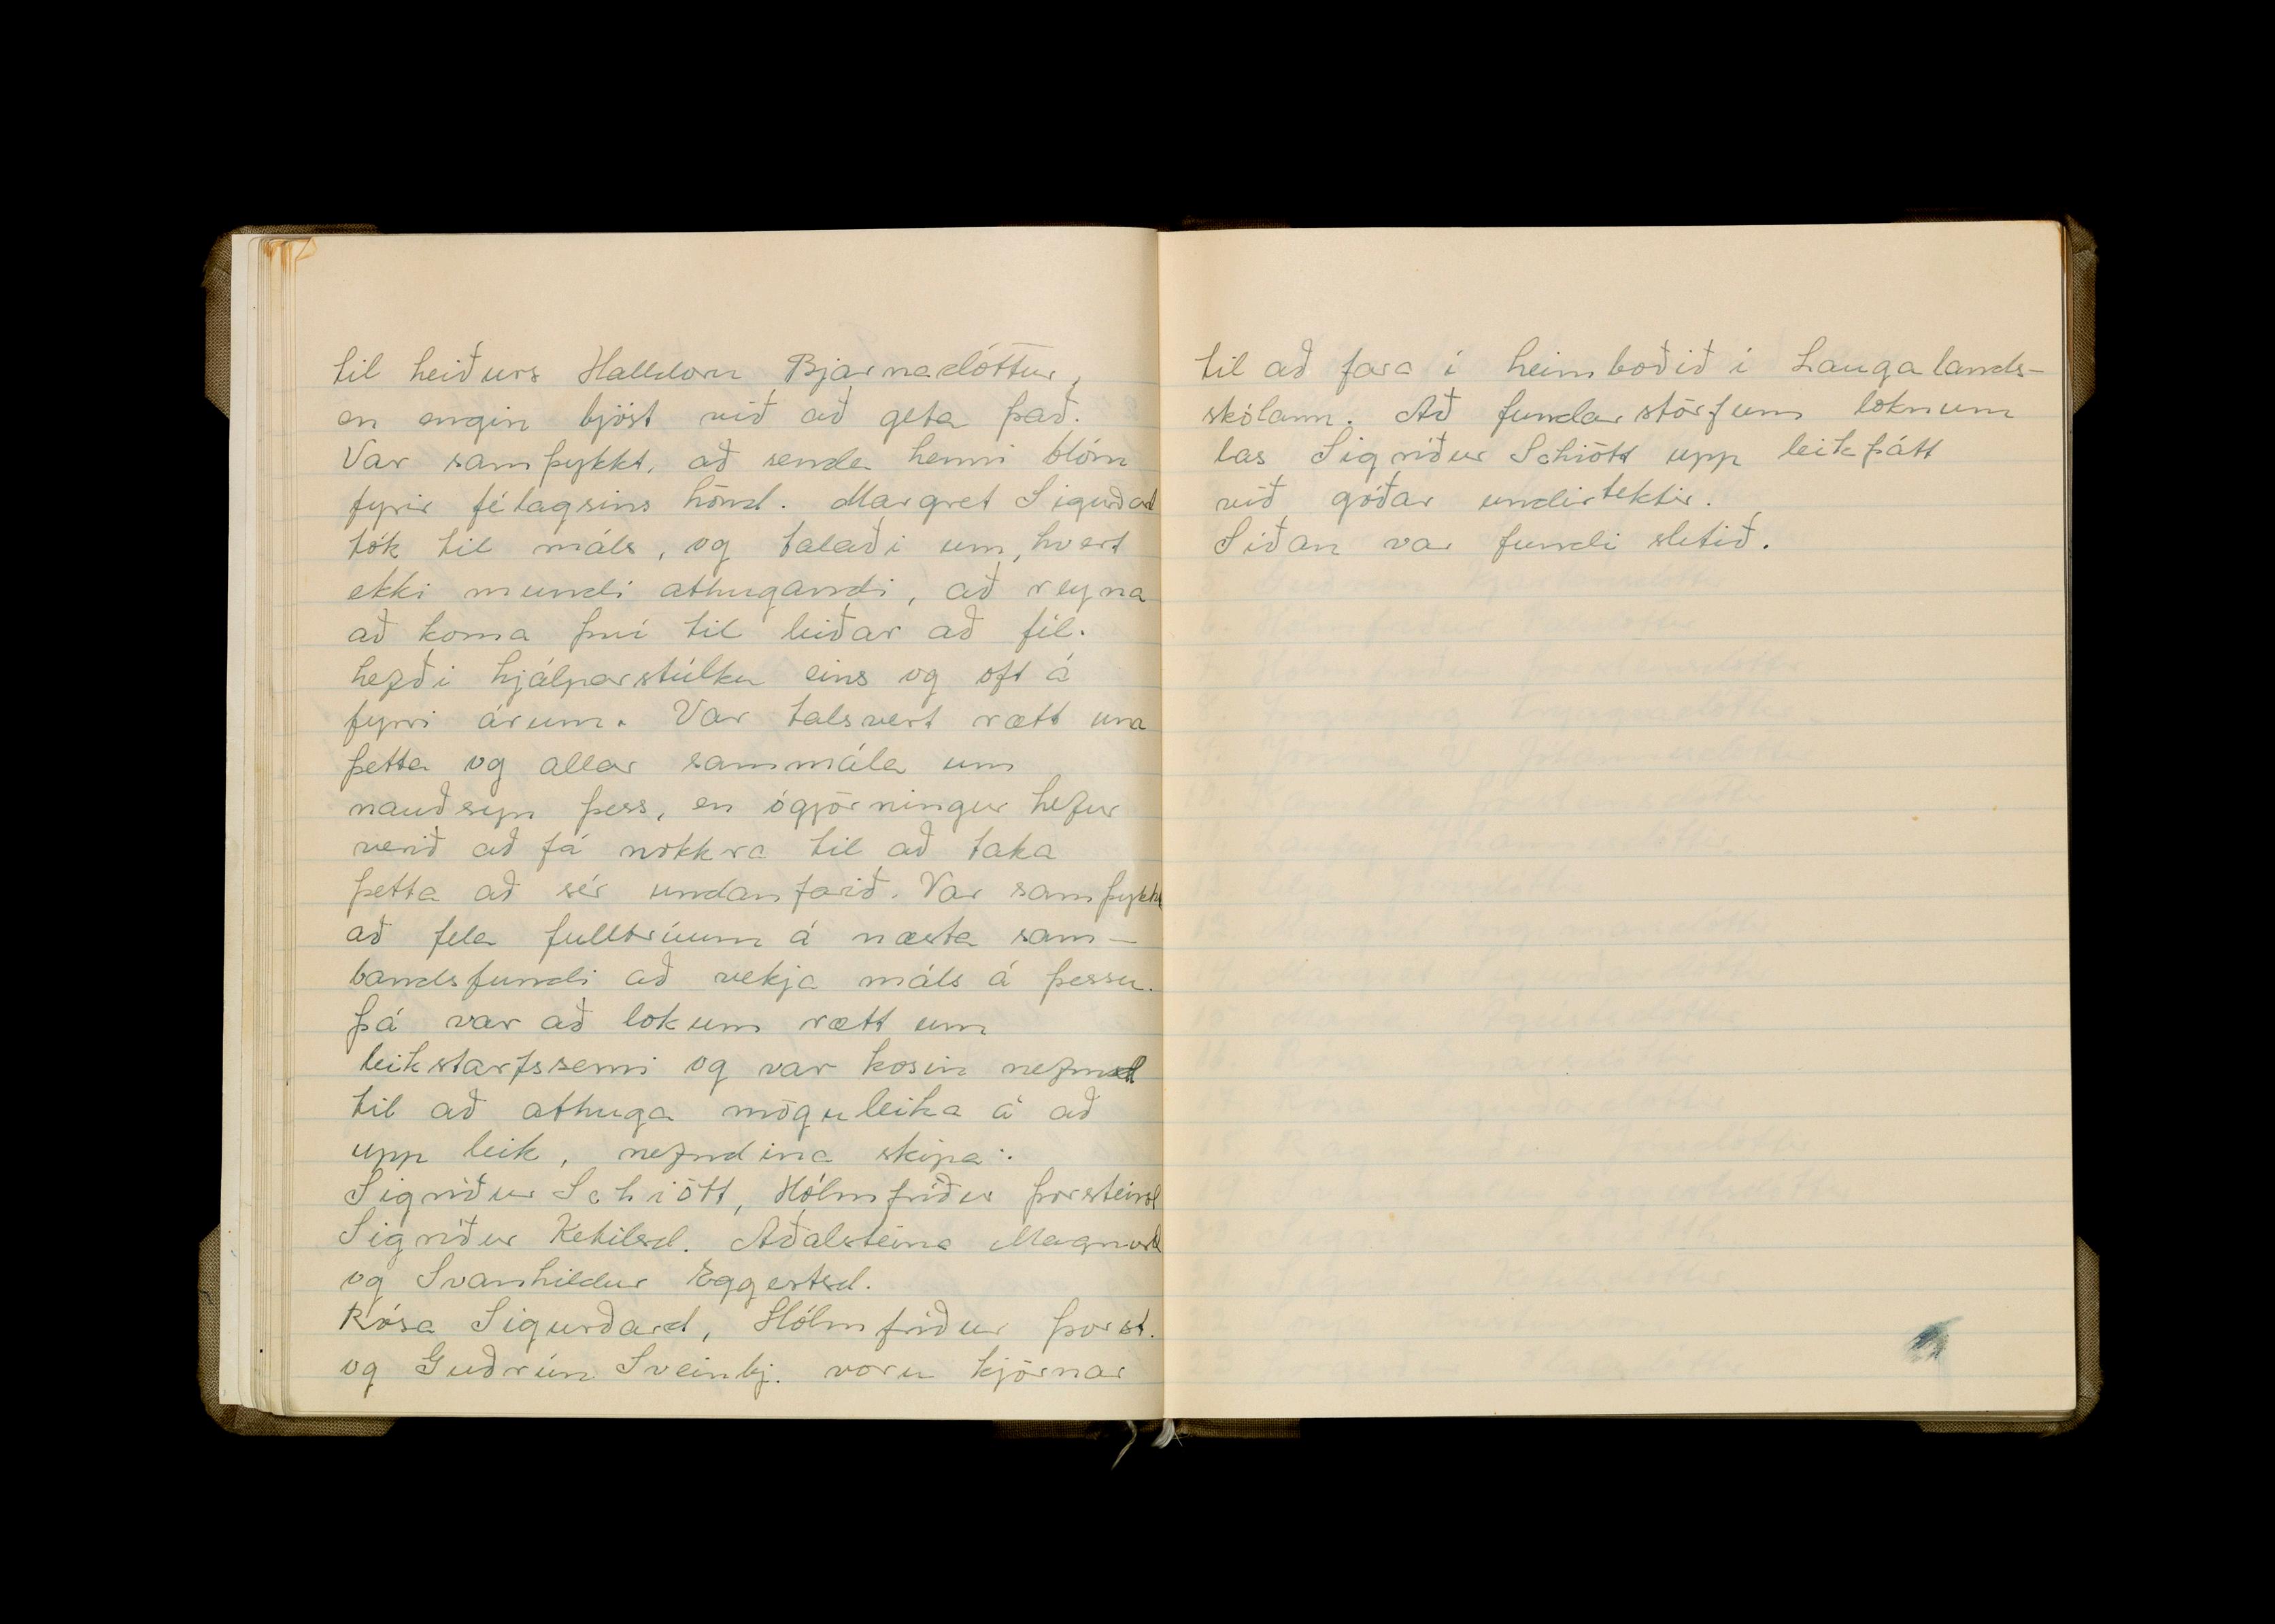 til heiðurs Halldoru Bjarnadóttur,
en engin bjóst við að geta það.
Var samþykkt, að senda henni blóm
fyrir félagsins hönd. Margret Sigurðard
tók til máls, og talaði um, hvert
ekki mundi athugandi, að reyna
að koma því til leiðar að fél.
hefði hjálparstúlku eins og oft á
fyrri árum. Var talsvert rætt um
þetta og allar sammála um
nauðsyn þess, en ógjörningur hefur
verið að fá nokkra til að taka
þetta að sér undanfarið. Var samþykkt
að fela fulltrúum á næsta sam-
bandsfundi að vekja máls á þessu.
Þá var að lokum rætt um
leikstarfssemi og var kosin nefnd
til að athuga möguleika á að
upp leik, nefndina skipa:
Sigríður Schiött, Hólmfríður Þorsteinsd
Sigríður Ketilsd. Aðalsteina Magnusd
og Svanhildur Eggertsd.
Rósa Sigurðard, Hólmfríður Þorst.
og Guðrún Sveinbj. voru kjörnar
til að fara í heimboðið í Laugalands-
skólann. Að fundarstörfum loknum
las Sigríður Schiött upp leikþátt
við góðar undirtektir.
Síðan var fundi slitið.